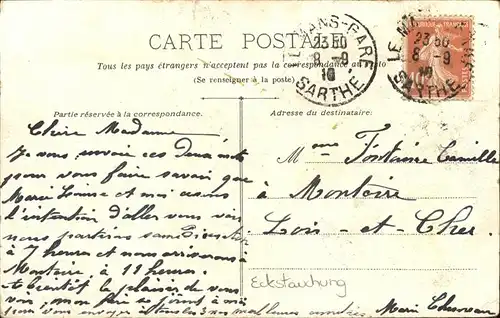 CARTE POSTALE
Tous les pays étrangers n'acceptent pas la correspondance au recto
(Se renseigner à la poste)
LE MANS-GARE
23 50
8 -9
10
SARTHE
LE M
23 50
8 -9
10
SARTHE
10
Partie réservée à la correspondance.
Adresse du destinataire:
Chère Madame
Je vous envoie ces deux
pour vous faire savoir que
Marie Louise et moi avons
l'intention d'aller vous voir
nous partirons
à 7 heures et nous arriverons à
Montoire à 11 heures.
le plaisir de vous
voir, mon père se joint à moi
pour vous envoyer nos meilleures amitiés Marie
Mme Fontaine Camille
à Montoire
Loir-et-Cher
Eckstauchung